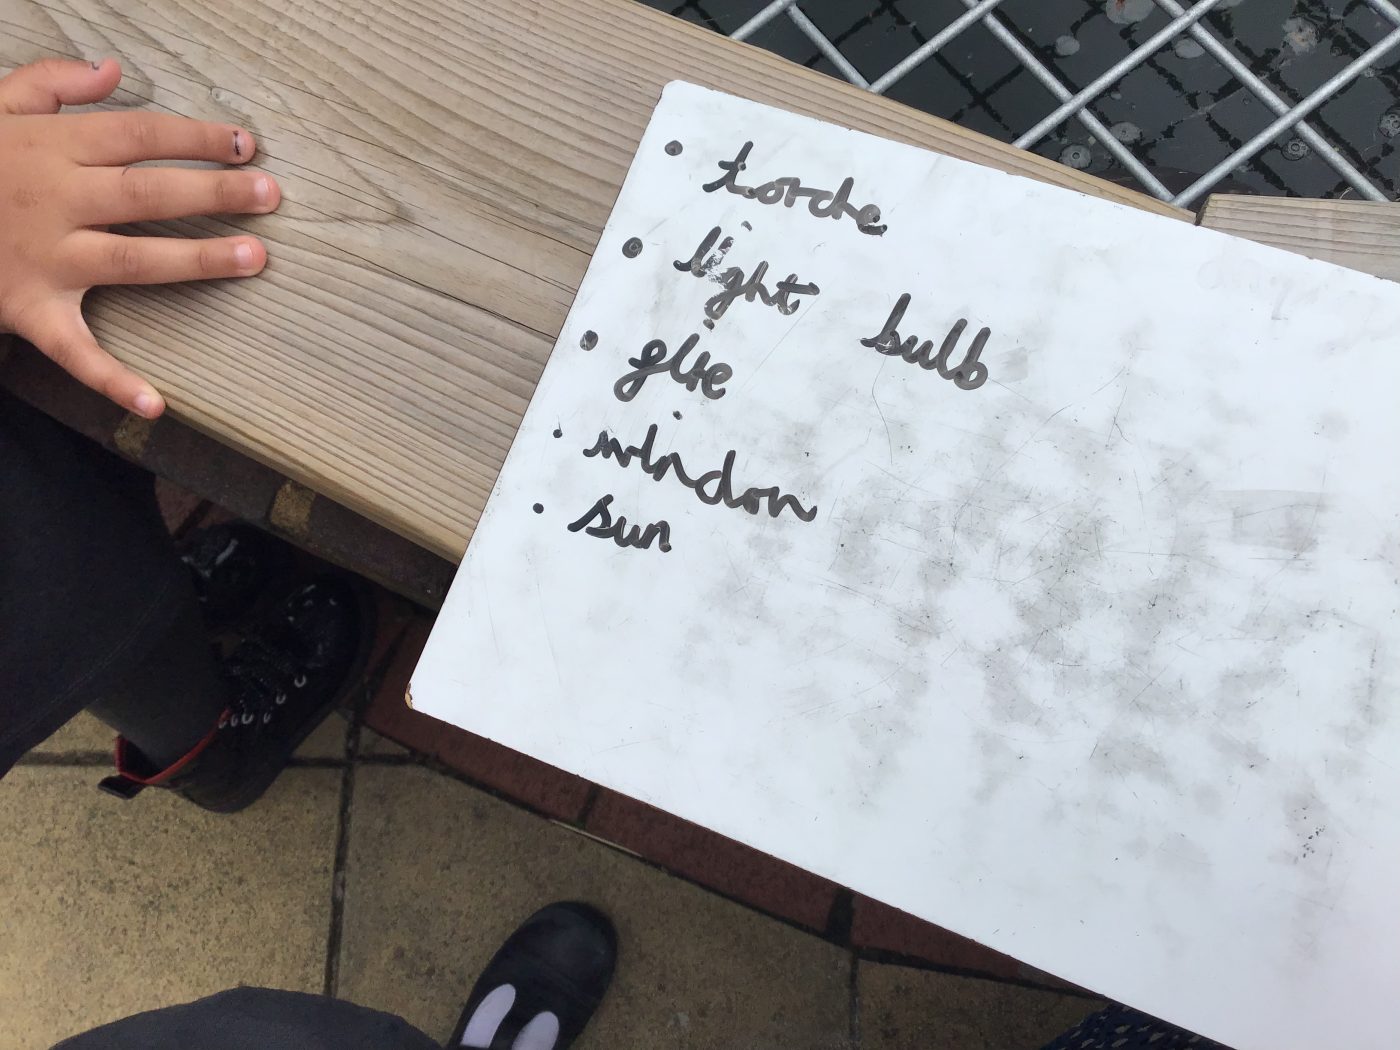 • torche
• light bulb
• fire
• window
• sun